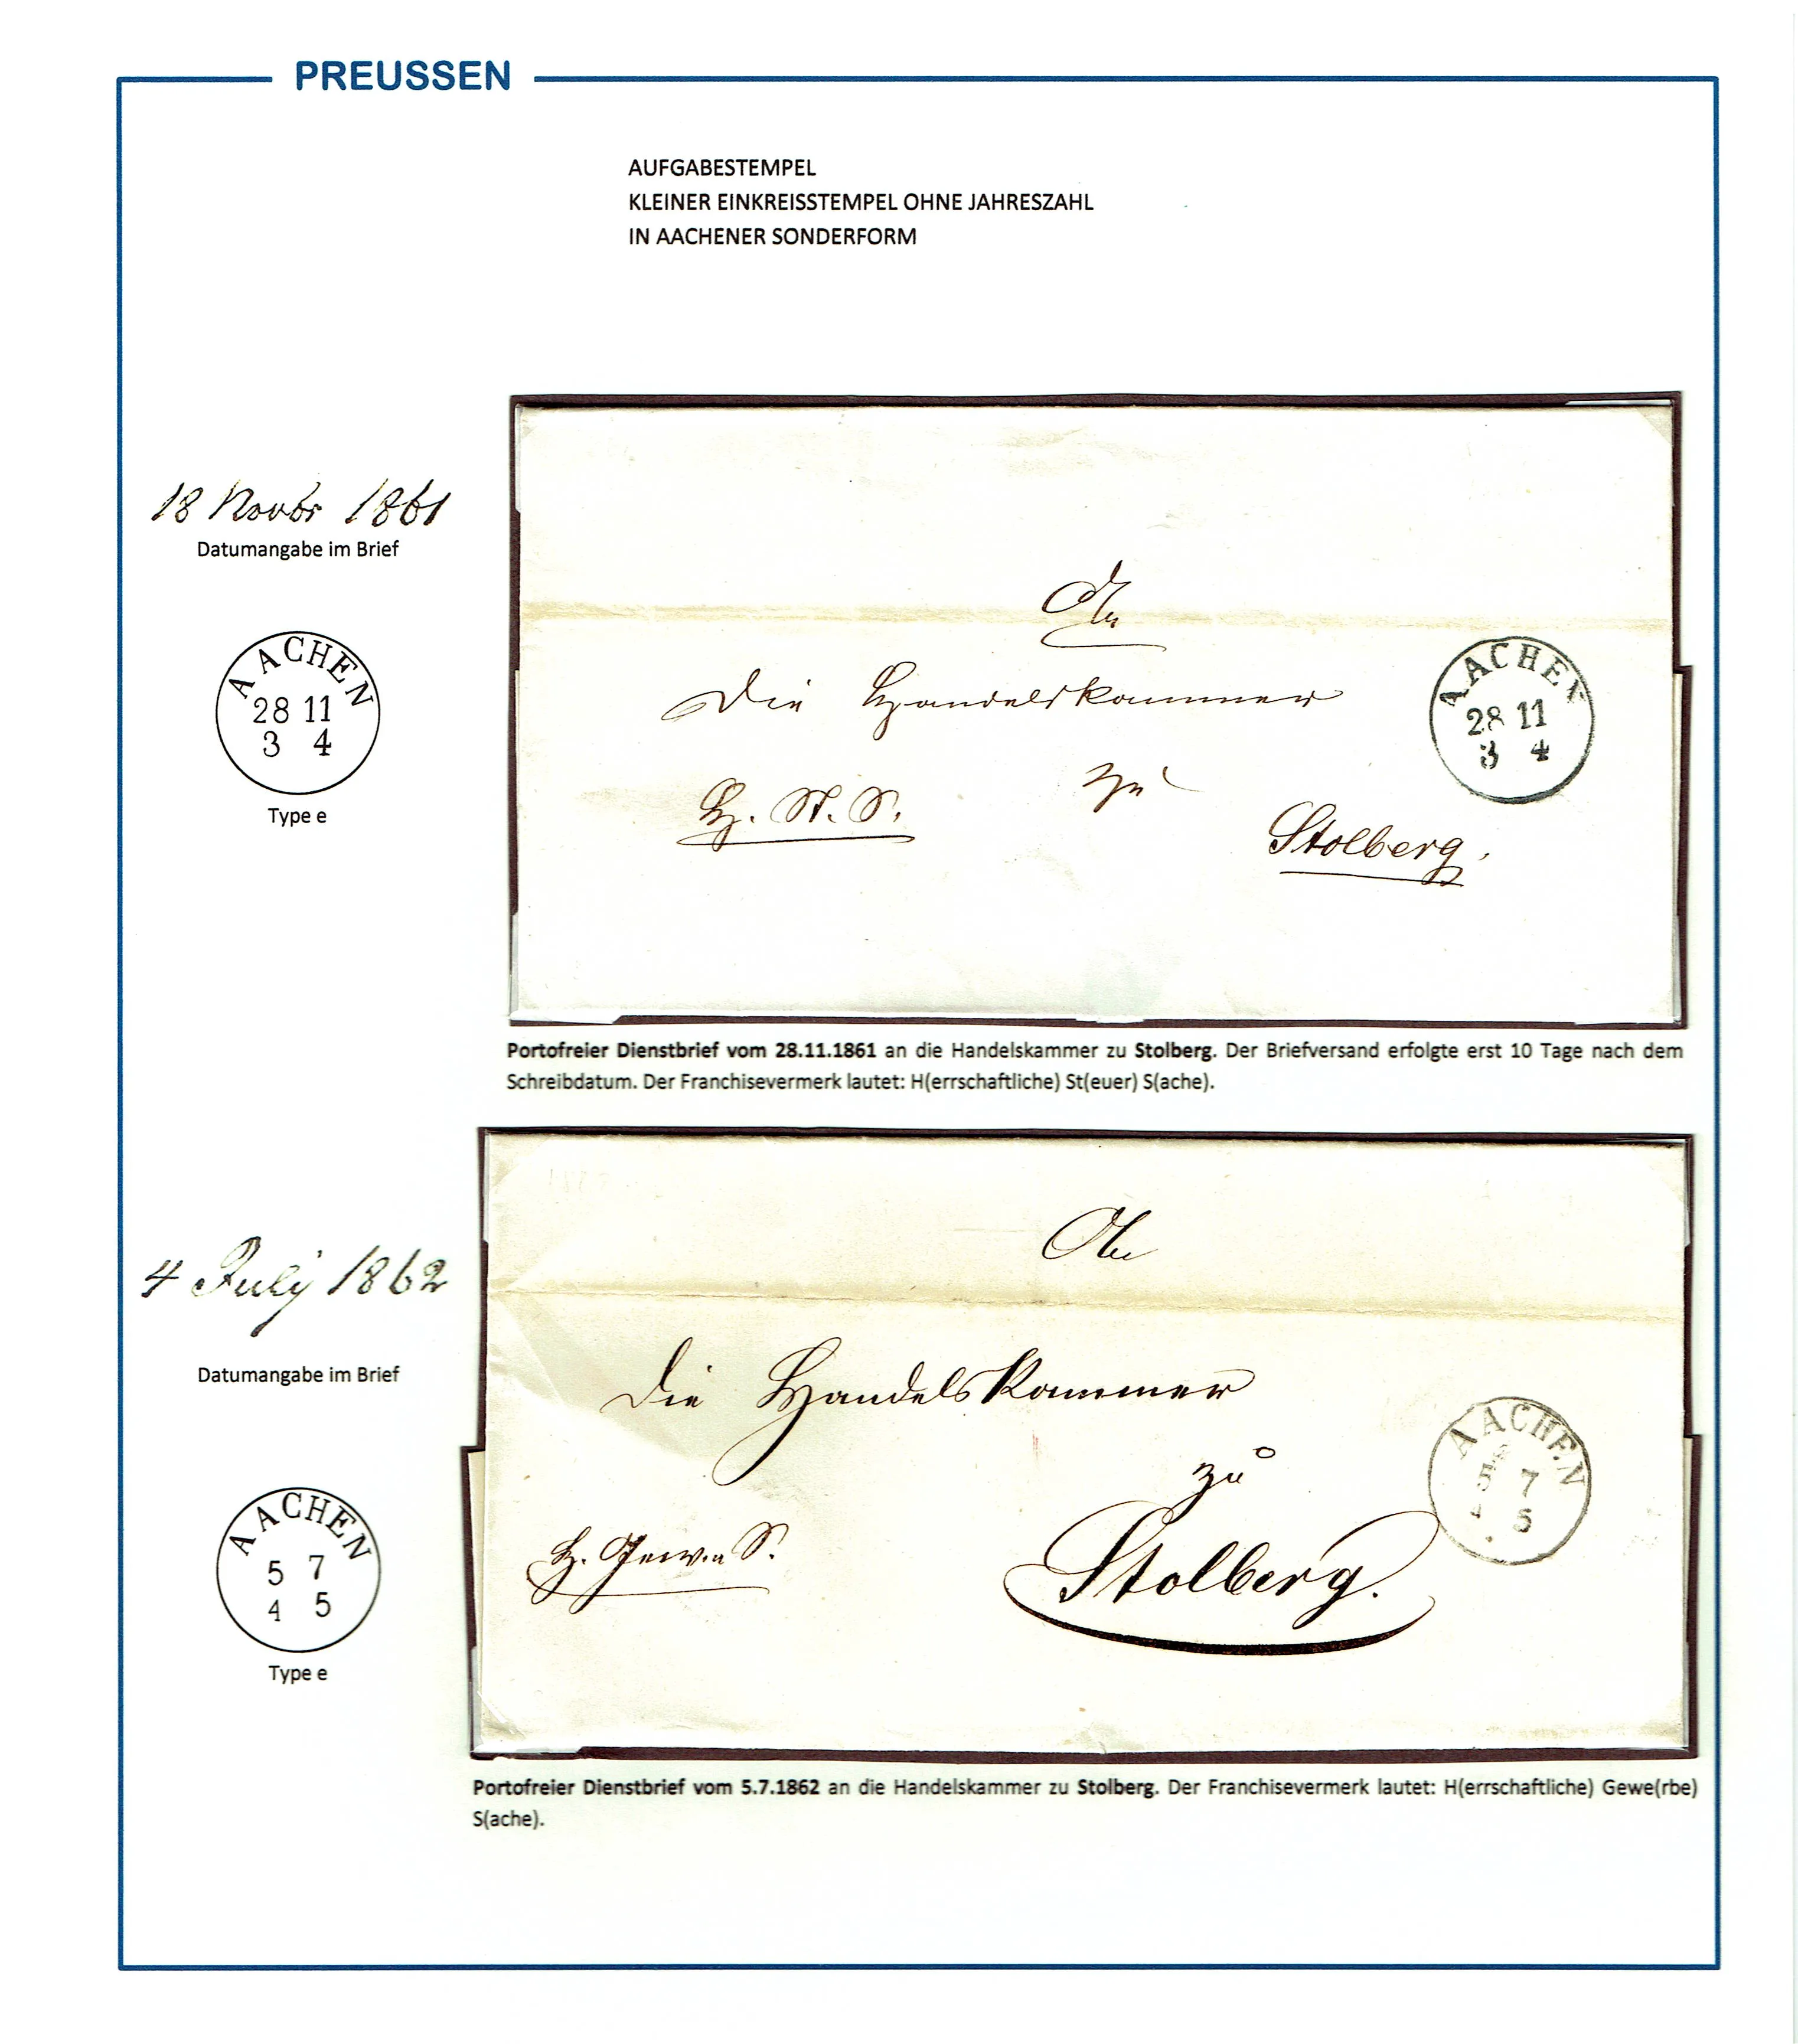 PREUSSEN
AUFGABESTEMPEL
KLEINER EINKREISSTEMPEL OHNE JAHRESZAHL
IN AACHENER SONDERFORM
18 Novbr 1861
Datumangabe im Brief
AACHEN
28 11
3 4
Type e
An
die Handelskammer
zu
H. St. S.
Stolberg.
AACHEN
28 11
3 4
Portofreier Dienstbrief vom 28.11.1861 an die Handelskammer zu Stolberg. Der Briefversand erfolgte erst 10 Tage nach dem
Schreibdatum. Der Franchisevermerk lautet: H(errschaftliche) St(euer) S(ache).
4 July 1862
Datumangabe im Brief
AACHEN
5 7
4 5
Type e
An
die Handelskammer
zu
H. Gewe S.
Stolberg.
AACHEN
5 7
4 5
Portofreier Dienstbrief vom 5.7.1862 an die Handelskammer zu Stolberg. Der Franchisevermerk lautet: H(errschaftliche) Gewe(rbe)
S(ache).